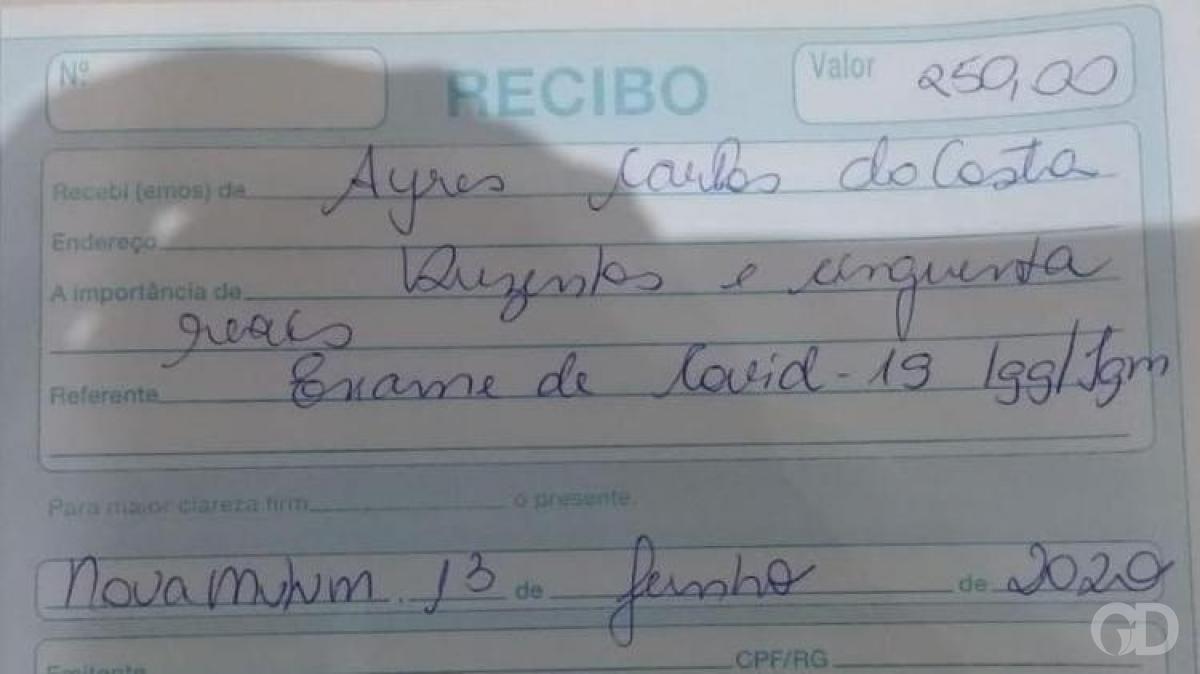 Nº RECIBO Valor 250,00
Recebi (emos) de Ayres Carlos do Costa
Endereço
A importância de Duzentos e cinquenta
reais
Referente Exame de Covid-19 Igg/Igm
Para maior clareza firm o presente.
Nova Mutum. 13 de Junho de 2020
Emitente CPF/RG
GD